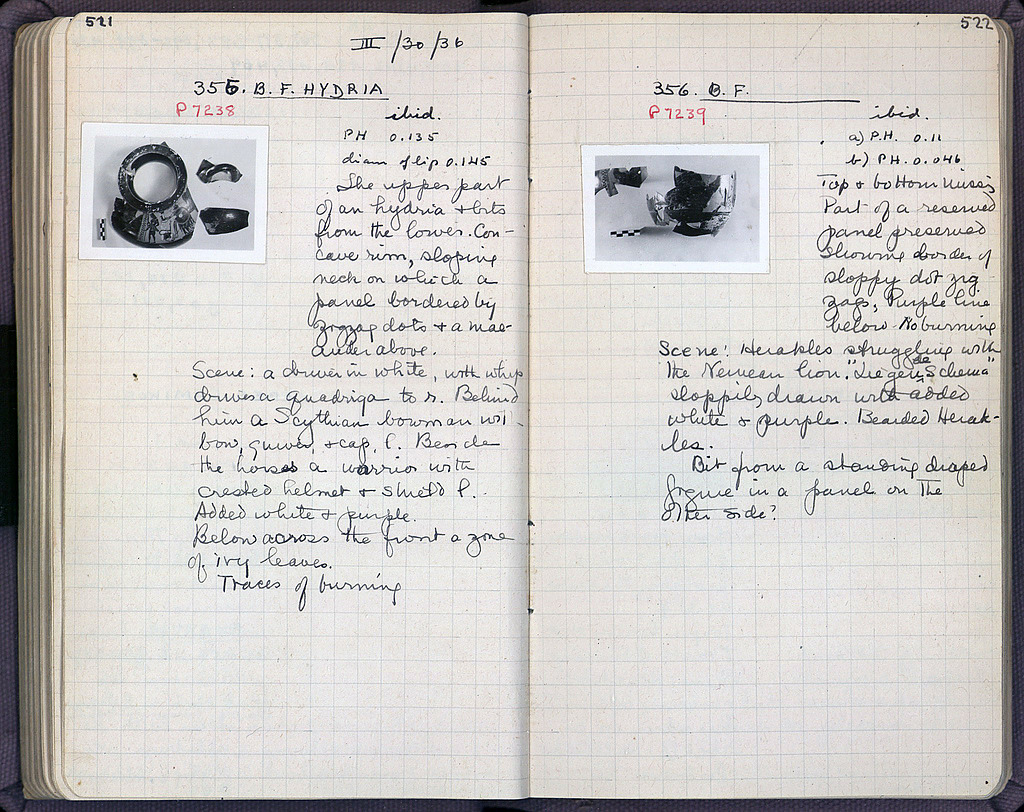 521
III/30/36
355. B. F. HYDRIA
P 7238
ibid.
PH 0.135
diam of lip 0.145
The upper part
of an hydria & bits
from the lower. Con-
cave rim, sloping
neck on which a
panel bordered by
zigzag dots & a mae-
ander above.
Scene: a driver in white, with whip
drives a quadriga to r. Behind
him a Scythian bowman with
bow, quiver, & cap, l. Beside
the horses a warrior with
crested helmet & shield l.
Added white & purple.
Below across the front a zone
of ivy leaves.
Traces of burning
522
356. B. F.
P 7239
ibid.
a) P.H. 0.11
b) PH. 0.046
Top & bottom missing
Part of a reserved
panel preserved
showing border of
sloppy dot zig
zags, Purple line
below. No burning
Scene: Herakles struggling with
the Nemean lion. "Liegende Schema"
sloppily drawn with added
white & purple. Bearded Herak-
les.
Bit from a standing draped
figure in a panel on the
other side?